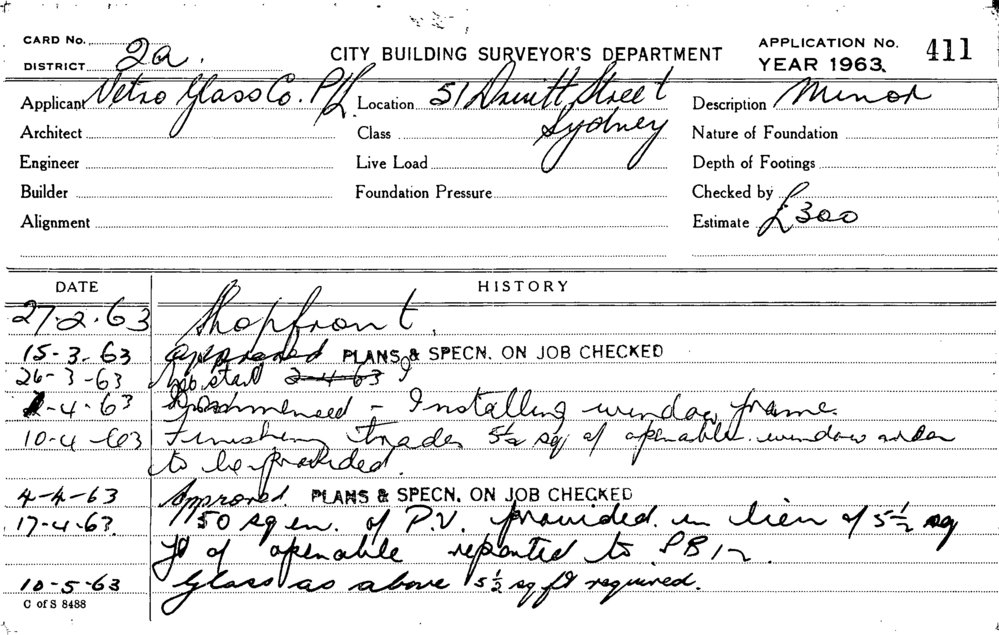 CARD No.
DISTRICT 2a.
CITY BUILDING SURVEYOR'S DEPARTMENT
APPLICATION No. 411
YEAR 1963
Applicant Vetro Glass Co. P/L.
Location 51 Druitt Street
Sydney
Description Minor
Architect
Class
Nature of Foundation
Engineer
Live Load
Depth of Footings
Builder
Foundation Pressure
Checked by
Alignment
Estimate £300
DATE
HISTORY
27.2.63 Shopfront.
15-3-63 Approved PLANS & SPECN. ON JOB CHECKED
26-3-63 No start 2-4-63
-4-63 Commenced - Installing window frame.
10-4-63 Finishing trades 5½ sq of openable window
to be provided.
4-4-63 Approved PLANS & SPECN. ON JOB CHECKED
17-4-63 150 sq in. of P.V. provided in lieu of 5½ sq
ft of openable reported to
10-5-63 Glass as above 5½ sq ft required.
C of S 8488